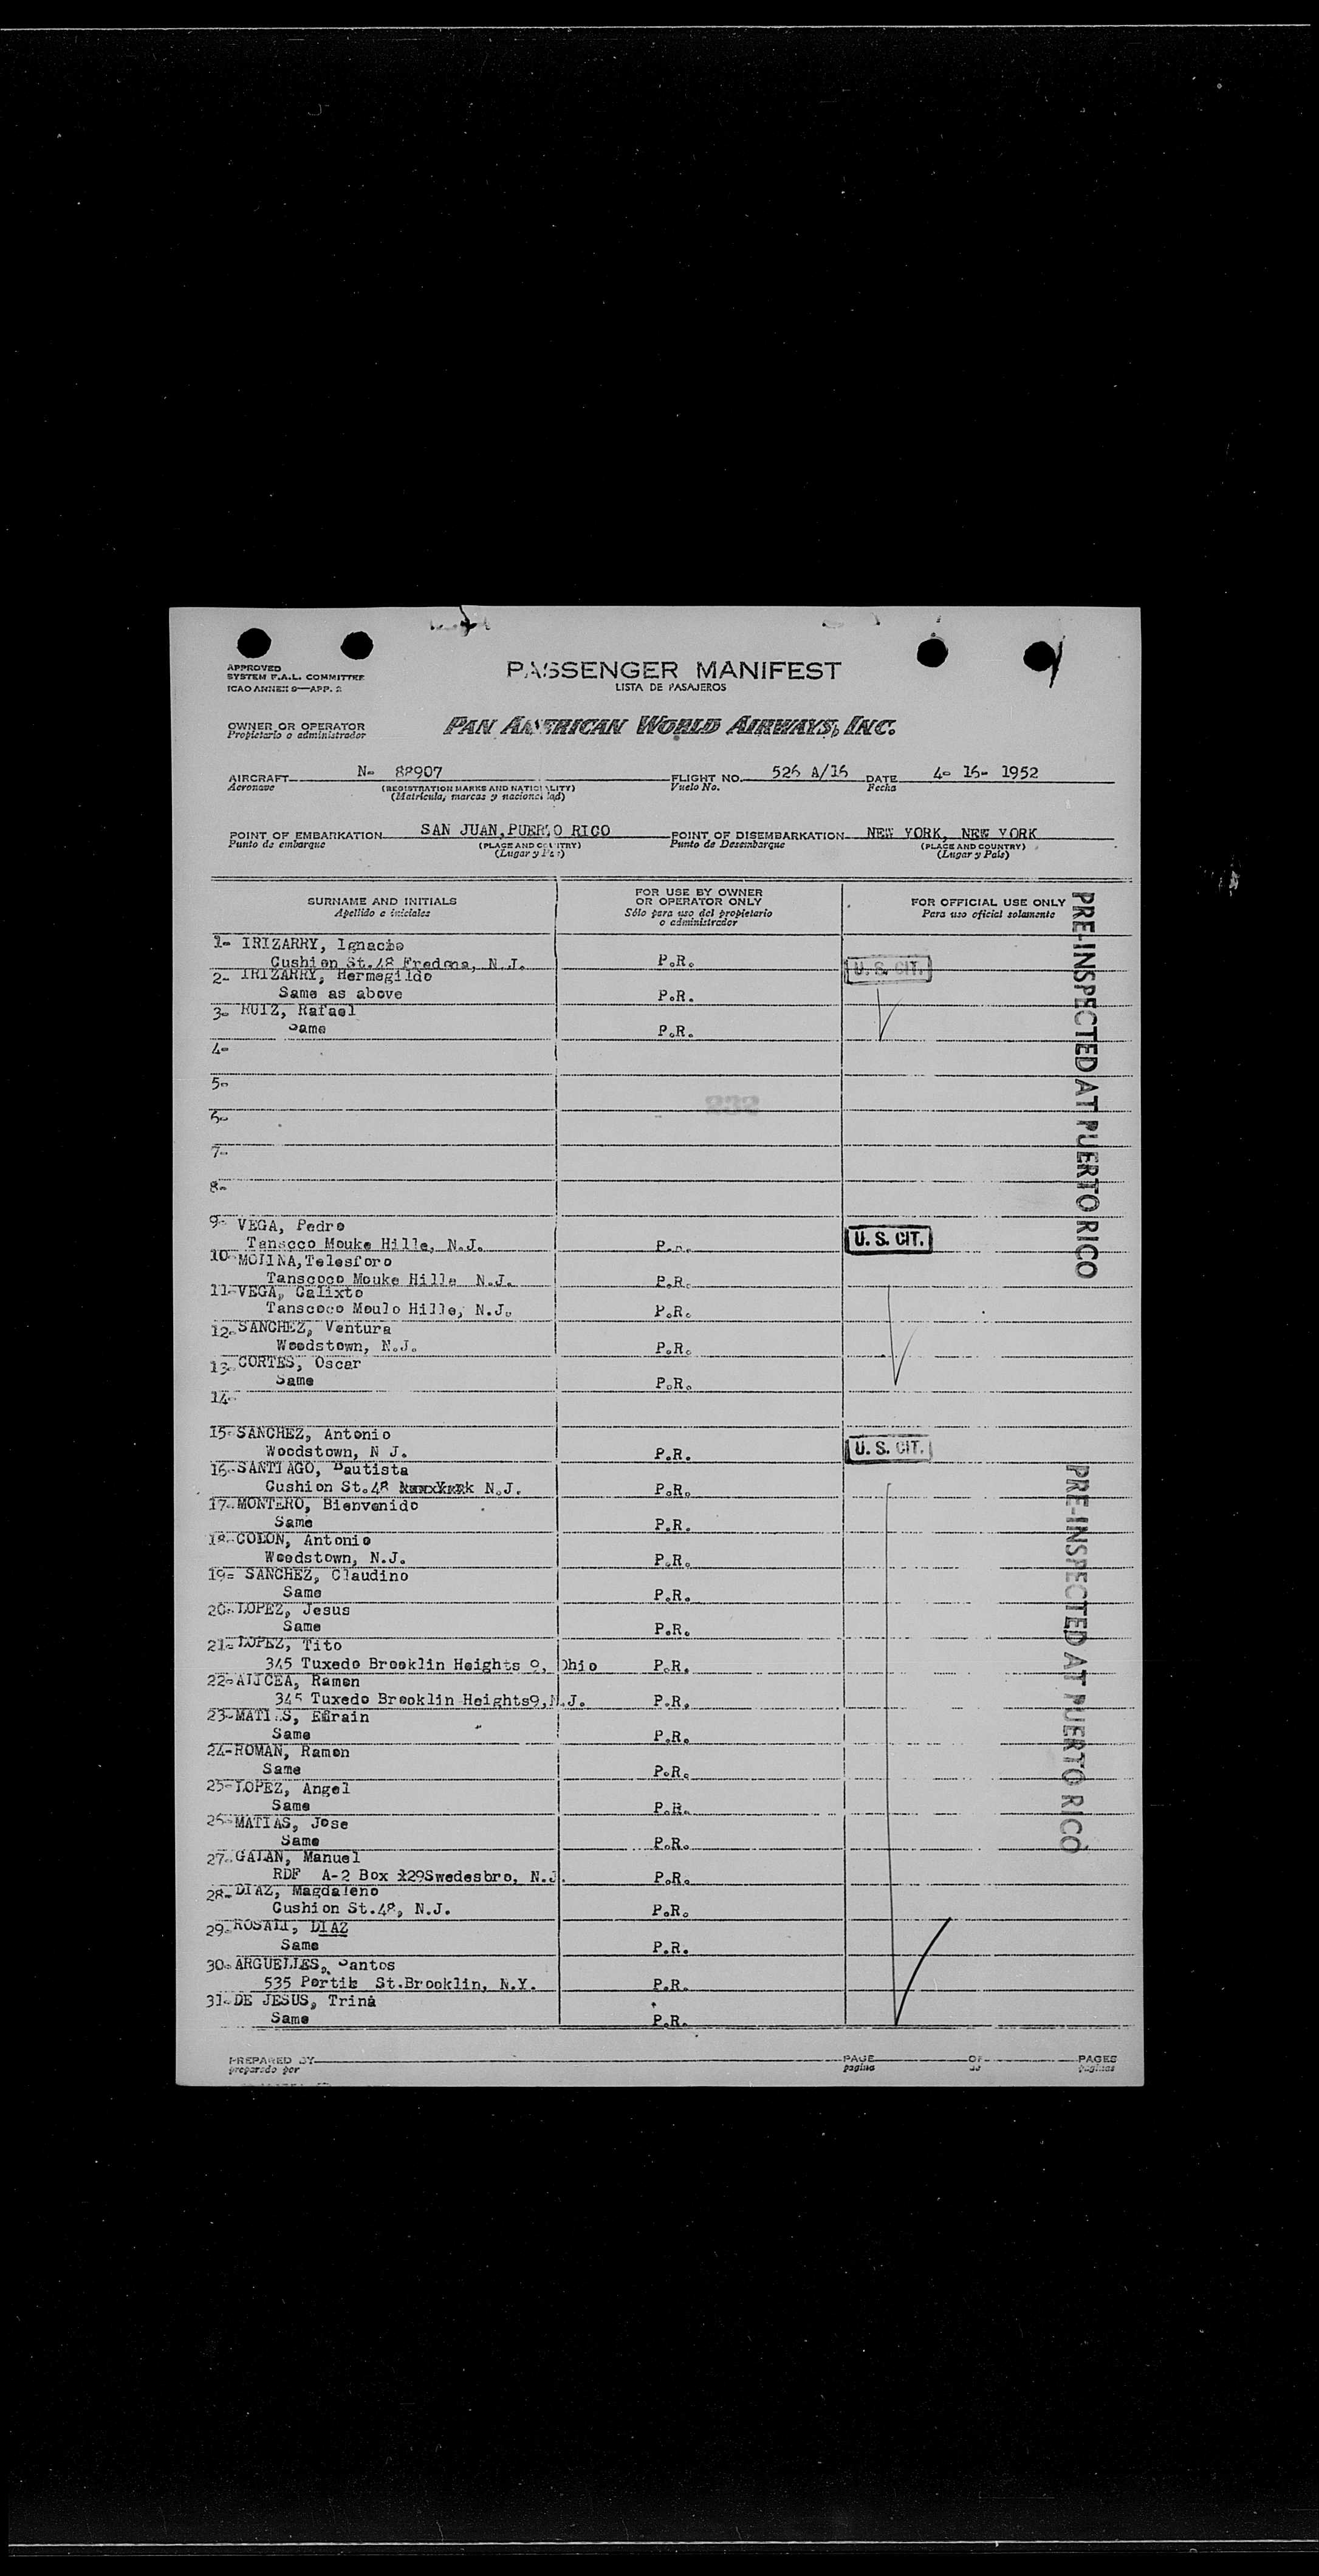 APPROVED
SYSTEM F.A.L. COMMITTEE
ICAO ANNEX 9—APP. 2
PASSENGER MANIFEST
LISTA DE PASAJEROS
OWNER OR OPERATOR
Propietario o administrador
PAN AMERICAN WORLD AIRWAYS, INC.
AIRCRAFT N- 88907 FLIGHT NO. 526 A/16 DATE 4- 16- 1952
Aeronave (REGISTRATION MARKS AND NATIONALITY) Vuelo No. Fecha
(Matrícula, marcas y nacionalidad)
POINT OF EMBARKATION SAN JUAN, PUERTO RICO POINT OF DISEMBARKATION NEW YORK, NEW YORK
Punto de embarque (PLACE AND COUNTRY) Punto de Desembarque (PLACE AND COUNTRY)
(Lugar y País) (Lugar y País)
SURNAME AND INITIALS
Apellido e iniciales
FOR USE BY OWNER
OR OPERATOR ONLY
Sólo para uso del propietario
o administrador
FOR OFFICIAL USE ONLY
Para uso oficial solamente
1- IRIZARRY, Ignacio
Cushion St.48 Fredona, N.J. P.R. U. S. CIT.
2- IRIZARRY, Hermegildo
Same as above P.R.
3- RUIZ, Rafael
Same P.R.
4-
5-
232
6-
7-
8-
9- VEGA, Pedro
Tanscco Mouke Hille, N.J. P.R. U. S. CIT.
10- MOLINA, Telesforo
Tanscoco Mouke Hille N.J. P.R.
11- VEGA, Calixto
Tanscoco Moulo Hille, N.J. P.R.
12- SANCHEZ, Ventura
Woodstown, N.J. P.R.
13- CORTES, Oscar
Same P.R.
14-
15- SANCHEZ, Antonio
Woodstown, N J. P.R. U. S. CIT.
16- SANTIAGO, Bautista
Cushion St.48 N.J. P.R.
17- MONTERO, Bienvenido
Same P.R.
18- COLON, Antonio
Woodstown, N.J. P.R.
19- SANCHEZ, Claudino
Same P.R.
20- LOPEZ, Jesus
Same P.R.
21- LOPEZ, Tito
345 Tuxedo Brooklin Heights 9, Ohio P.R.
22- ALICEA, Ramon
345 Tuxedo Brooklin Heights9,N.J. P.R.
23- MATIAS, Efrain
Same P.R.
24- ROMAN, Ramon
Same P.R.
25- LOPEZ, Angel
Same P.R.
26- MATIAS, Jose
Same P.R.
27- GALAN, Manuel
RDF A-2 Box 129Swedesbro, N.J. P.R.
28- DIAZ, Magdaleno
Cushion St.48, N.J. P.R.
29- ROSALI, DIAZ
Same P.R.
30- ARGUELLES, Santos
535 St.Brooklin, N.Y. P.R.
31- DE JESUS, Trina
Same P.R.
PRE-INSPECTED AT PUERTO RICO
PRE-INSPECTED AT PUERTO RICO
PREPARED BY PAGE OF PAGES
preparado por pagina de paginas